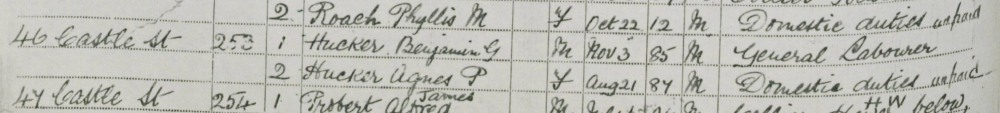 2 Roach Phyllis M F Oct 22 12 M Domestic duties unpaid
46 Castle St 253 1 Hucker Benjamin G M Nov 3 85 M General Labourer
2 Hucker Agnes P F Aug 21 87 M Domestic duties unpaid
47 Castle St 254 1 Probert Alfred James M HW below,